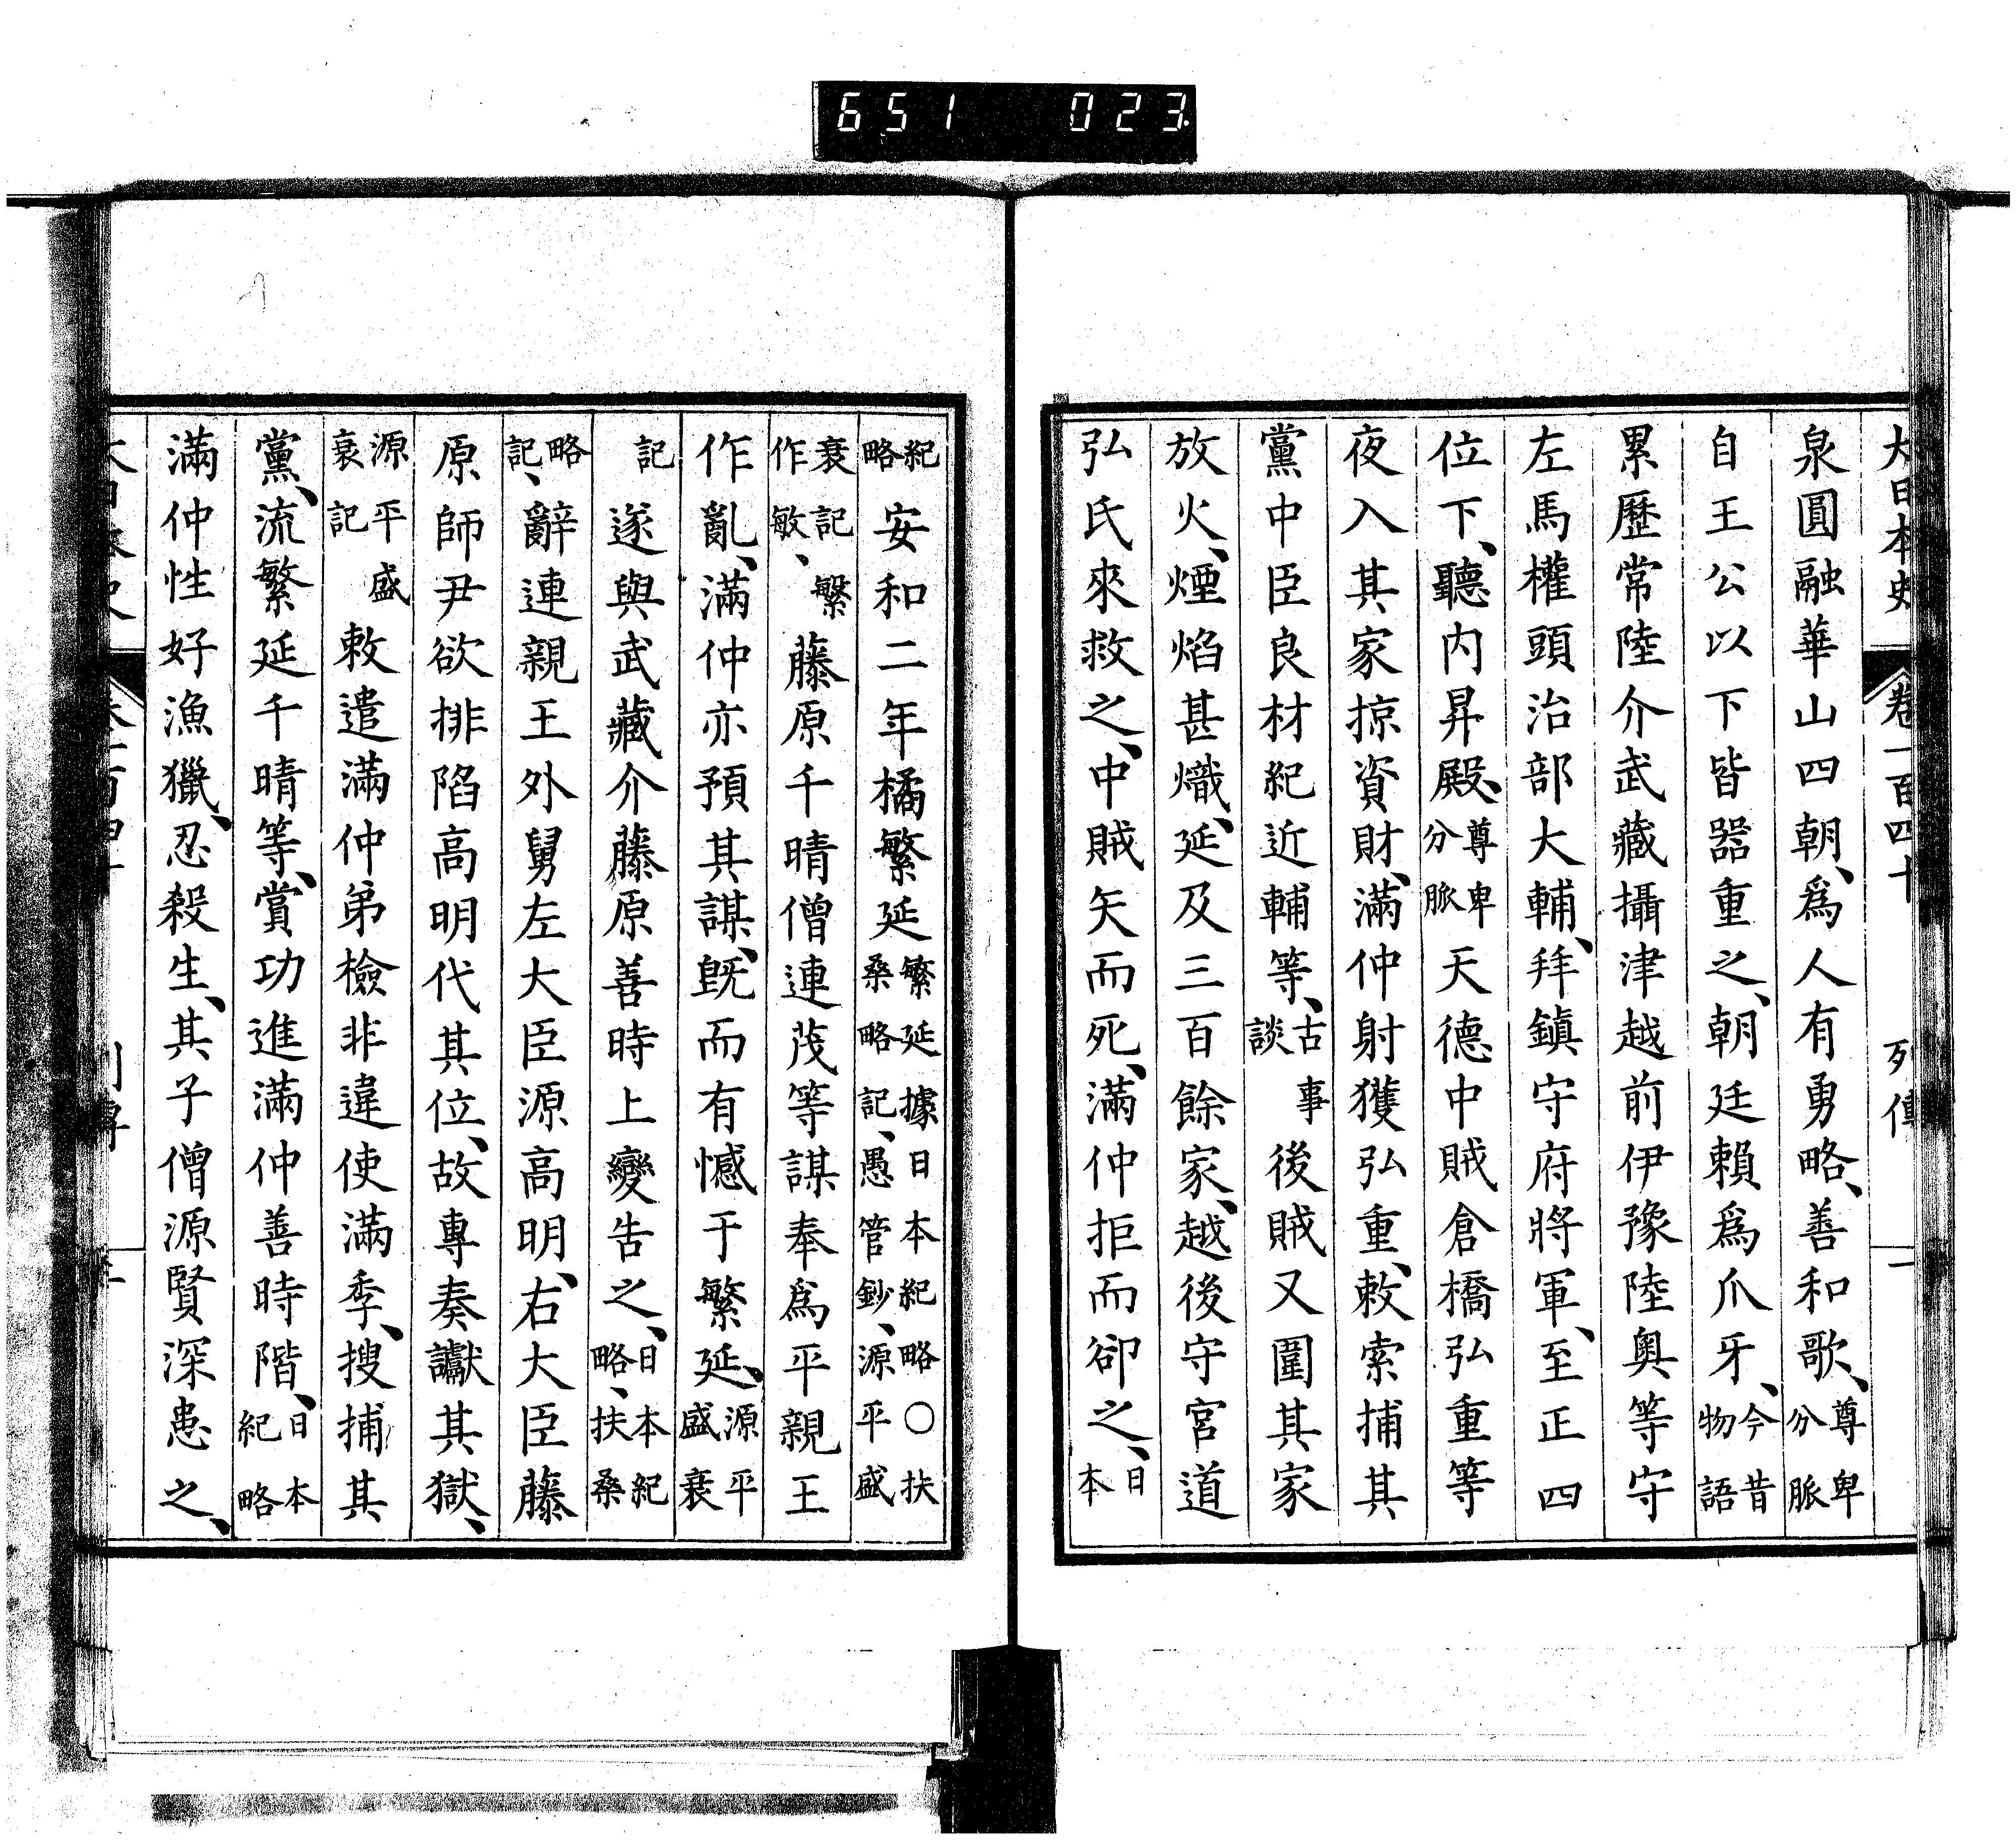 651 023
大日本史 卷一百四十 列傳 一
泉圓融華山四朝、爲人有勇略、善和歌、尊卑分脈
自王公以下皆器重之、朝廷賴爲爪牙、今昔物語
累歷常陸介武藏攝津越前伊豫陸奧等守
左馬權頭治部大輔、拜鎭守府將軍、至正四
位下、聽內昇殿、尊卑分脈天德中賊倉橋弘重等
夜入其家掠資財、滿仲射獲弘重、敕索捕其
黨中臣良材紀近輔等、古事談後賊又圍其家
放火、煙焰甚熾、延及三百餘家、越後守宮道
弘氏來救之、中賊矢而死、滿仲拒而卻之、日本
紀略安和二年橘繁延繁延據日本紀略○扶桑略記、愚管鈔、源平盛
衰記作敏、繁藤原千晴僧連茂等謀奉爲平親王
作亂、滿仲亦預其謀、旣而有憾于繁延、源平盛衰
記遂與武藏介藤原善時上變吿之、日本紀略、扶桑
略記、辭連親王外舅左大臣源高明、右大臣藤
原師尹欲排陷高明代其位、故專奏讞其獄、
源平盛衰記敕遣滿仲弟檢非違使滿季、搜捕其
黨、流繁延千晴等、賞功進滿仲善時階、日本紀略
滿仲性好漁獵、忍殺生、其子僧源賢深患之、